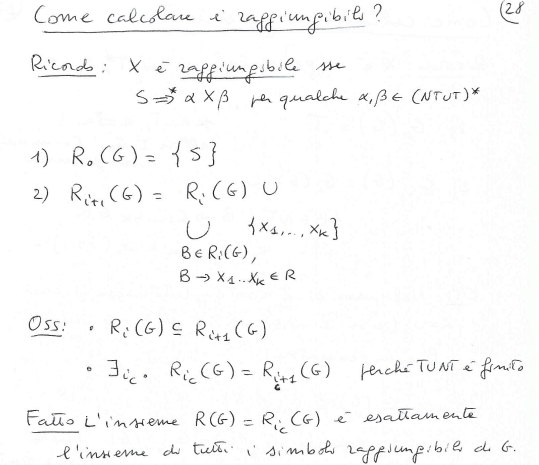 Come calcolare i raggiungibili? 28
Ricorda: X è raggiungibile sse
S ⇒* α X β per qualche α, β ∈ (NT∪T)*
1) R₀(G) = {S}
2) Rᵢ₊₁(G) = Rᵢ(G) ∪
∪ {x₁,..., xₖ}
B ∈ Rᵢ(G),
B → x₁..xₖ ∈ R
Oss: • Rᵢ(G) ⊆ Rᵢ₊₁(G)
• ∃i_c. R_{i_c}(G) = R_{i_c+1}(G) perché T∪NT è finito
Fatto L'insieme R(G) = R_{i_c}(G) è esattamente
l'insieme di tutti i simboli raggiungibili di G.